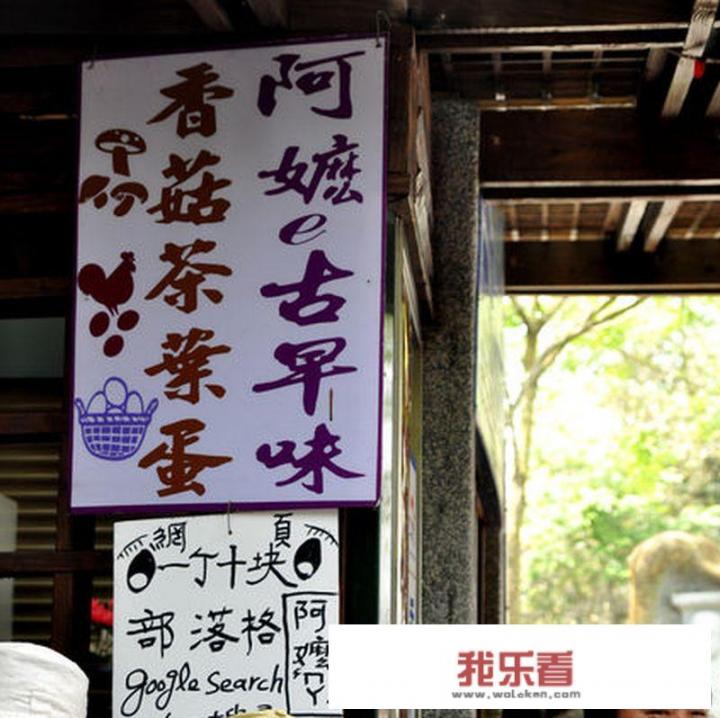 阿嬤e古早味
香菇茶葉蛋
網頁
一丁十块
部落格
google search
阿嬤
我乐看
www.woleken.com